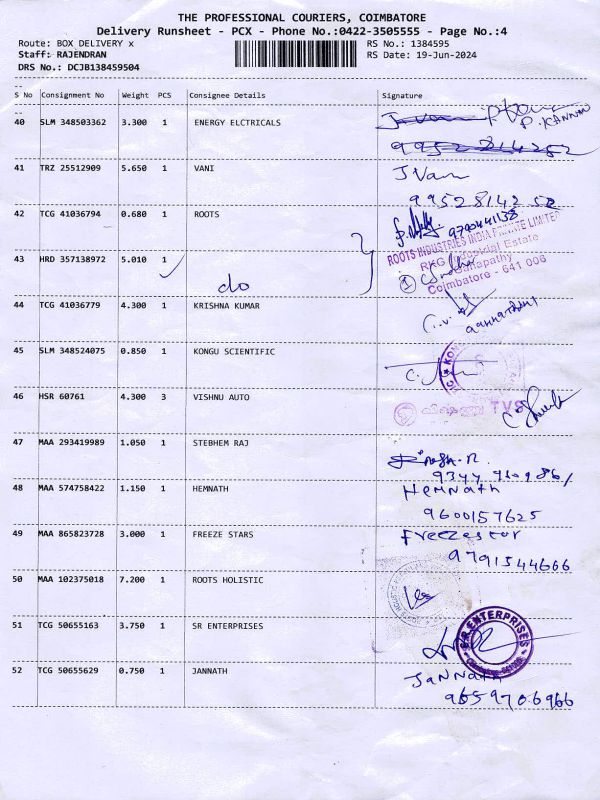 THE PROFESSIONAL COURIERS, COIMBATORE
Delivery Runsheet - PCX - Phone No.:0422-3505555 - Page No.:4
Route: BOX DELIVERY x RS No.: 1384595
Staff: RAJENDRAN RS Date: 19-Jun-2024
DRS No.: DCJB138459504
S No Consignment No Weight PCS Consignee Details Signature
40 SLM 348503362 3.300 1 ENERGY ELCTRICALS P. KANNAN
41 TRZ 25512909 5.650 1 VANI J Vani
9952814252
42 TCG 41036794 0.680 1 ROOTS 9790441138
ROOTS INDUSTRIES INDIA PRIVATE LIMITED
43 HRD 357138972 5.010 1 do
RKG Industrial Estate
Ganapathy
Coimbatore - 641 006
44 TCG 41036779 4.300 1 KRISHNA KUMAR
45 SLM 348524075 0.850 1 KONGU SCIENTIFIC
46 HSR 60761 4.300 3 VISHNU AUTO TVS
47 MAA 293419989 1.050 1 STEBHEM RAJ
48 MAA 574758422 1.150 1 HEMNATH Hemnath
9600157625
49 MAA 865823728 3.000 1 FREEZE STARS Freezestor
9791544666
50 MAA 102375018 7.200 1 ROOTS HOLISTIC
51 TCG 50655163 3.750 1 SR ENTERPRISES S.R. ENTERPRISES
52 TCG 50655629 0.750 1 JANNATH Jannath
9659706966